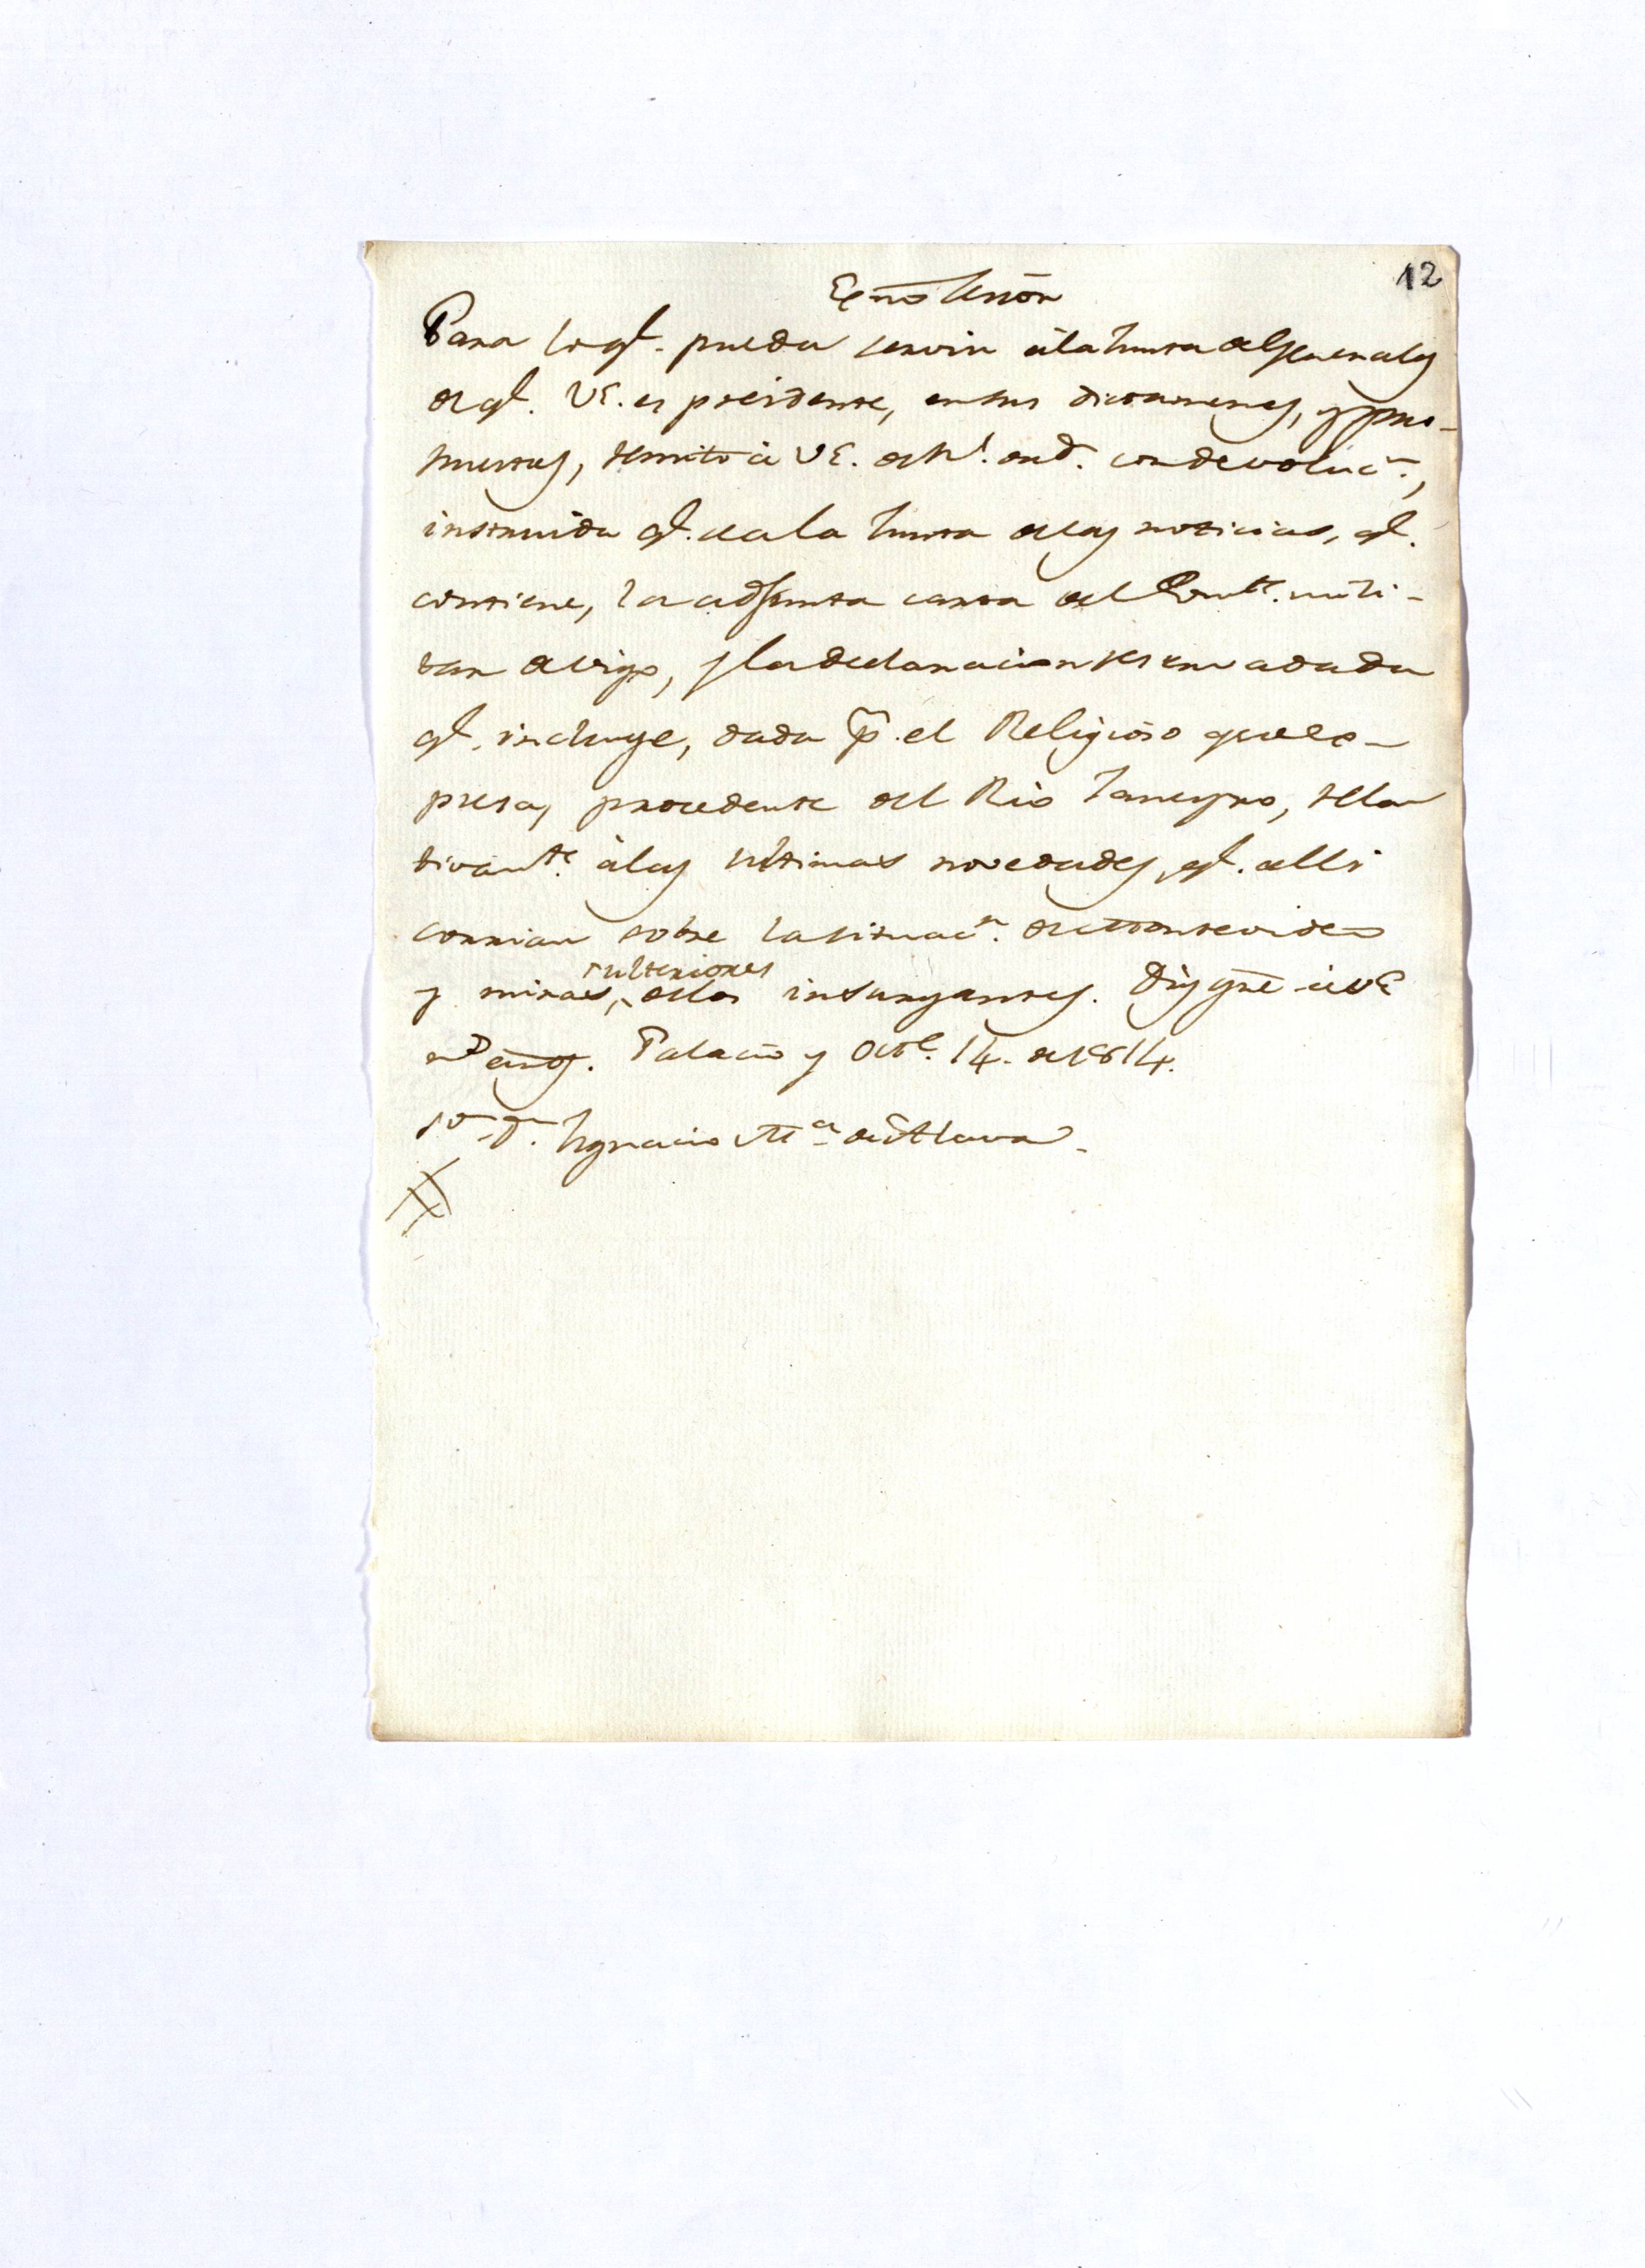 12
Exmo Señor
Para lo ql. pueda servir á la Junta de Generales
de ql. VE. es presidente, en sus dictamenes, y pro-
puestas, remito á VE. de Rl. ord. con devoluc.n,
instruida ql. sea la Junta de las noticias, ql.
contiene, la adjunta carta del Comte. mili-
tar de Vigo, y la declaracion reservada
ql. incluye, dada p. el Religioso que ex-
presa, procedente del Rio Janeyro, rela
tivamte. á las ultimas novedades, ql. alli
corrian sobre la situac.n de Montevideo
y miras ulteriores de los insurgentes. Dios gue á VE
ms años. Palacio y Octe. 14. de 1814.
Sor Dn. Ygnacio Ma de Alava